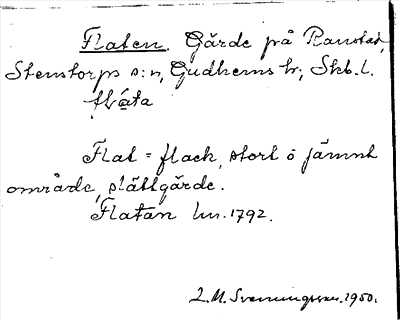 Flaten. Gärde på Ranstad,
Stenstorps s:n, Gudhems hr, Skb. l.
flata
Flat = flack, stort o jämnt
område, slättgärde.
Flatan lm. 1792.
L.M. Svenungsson. 1950.